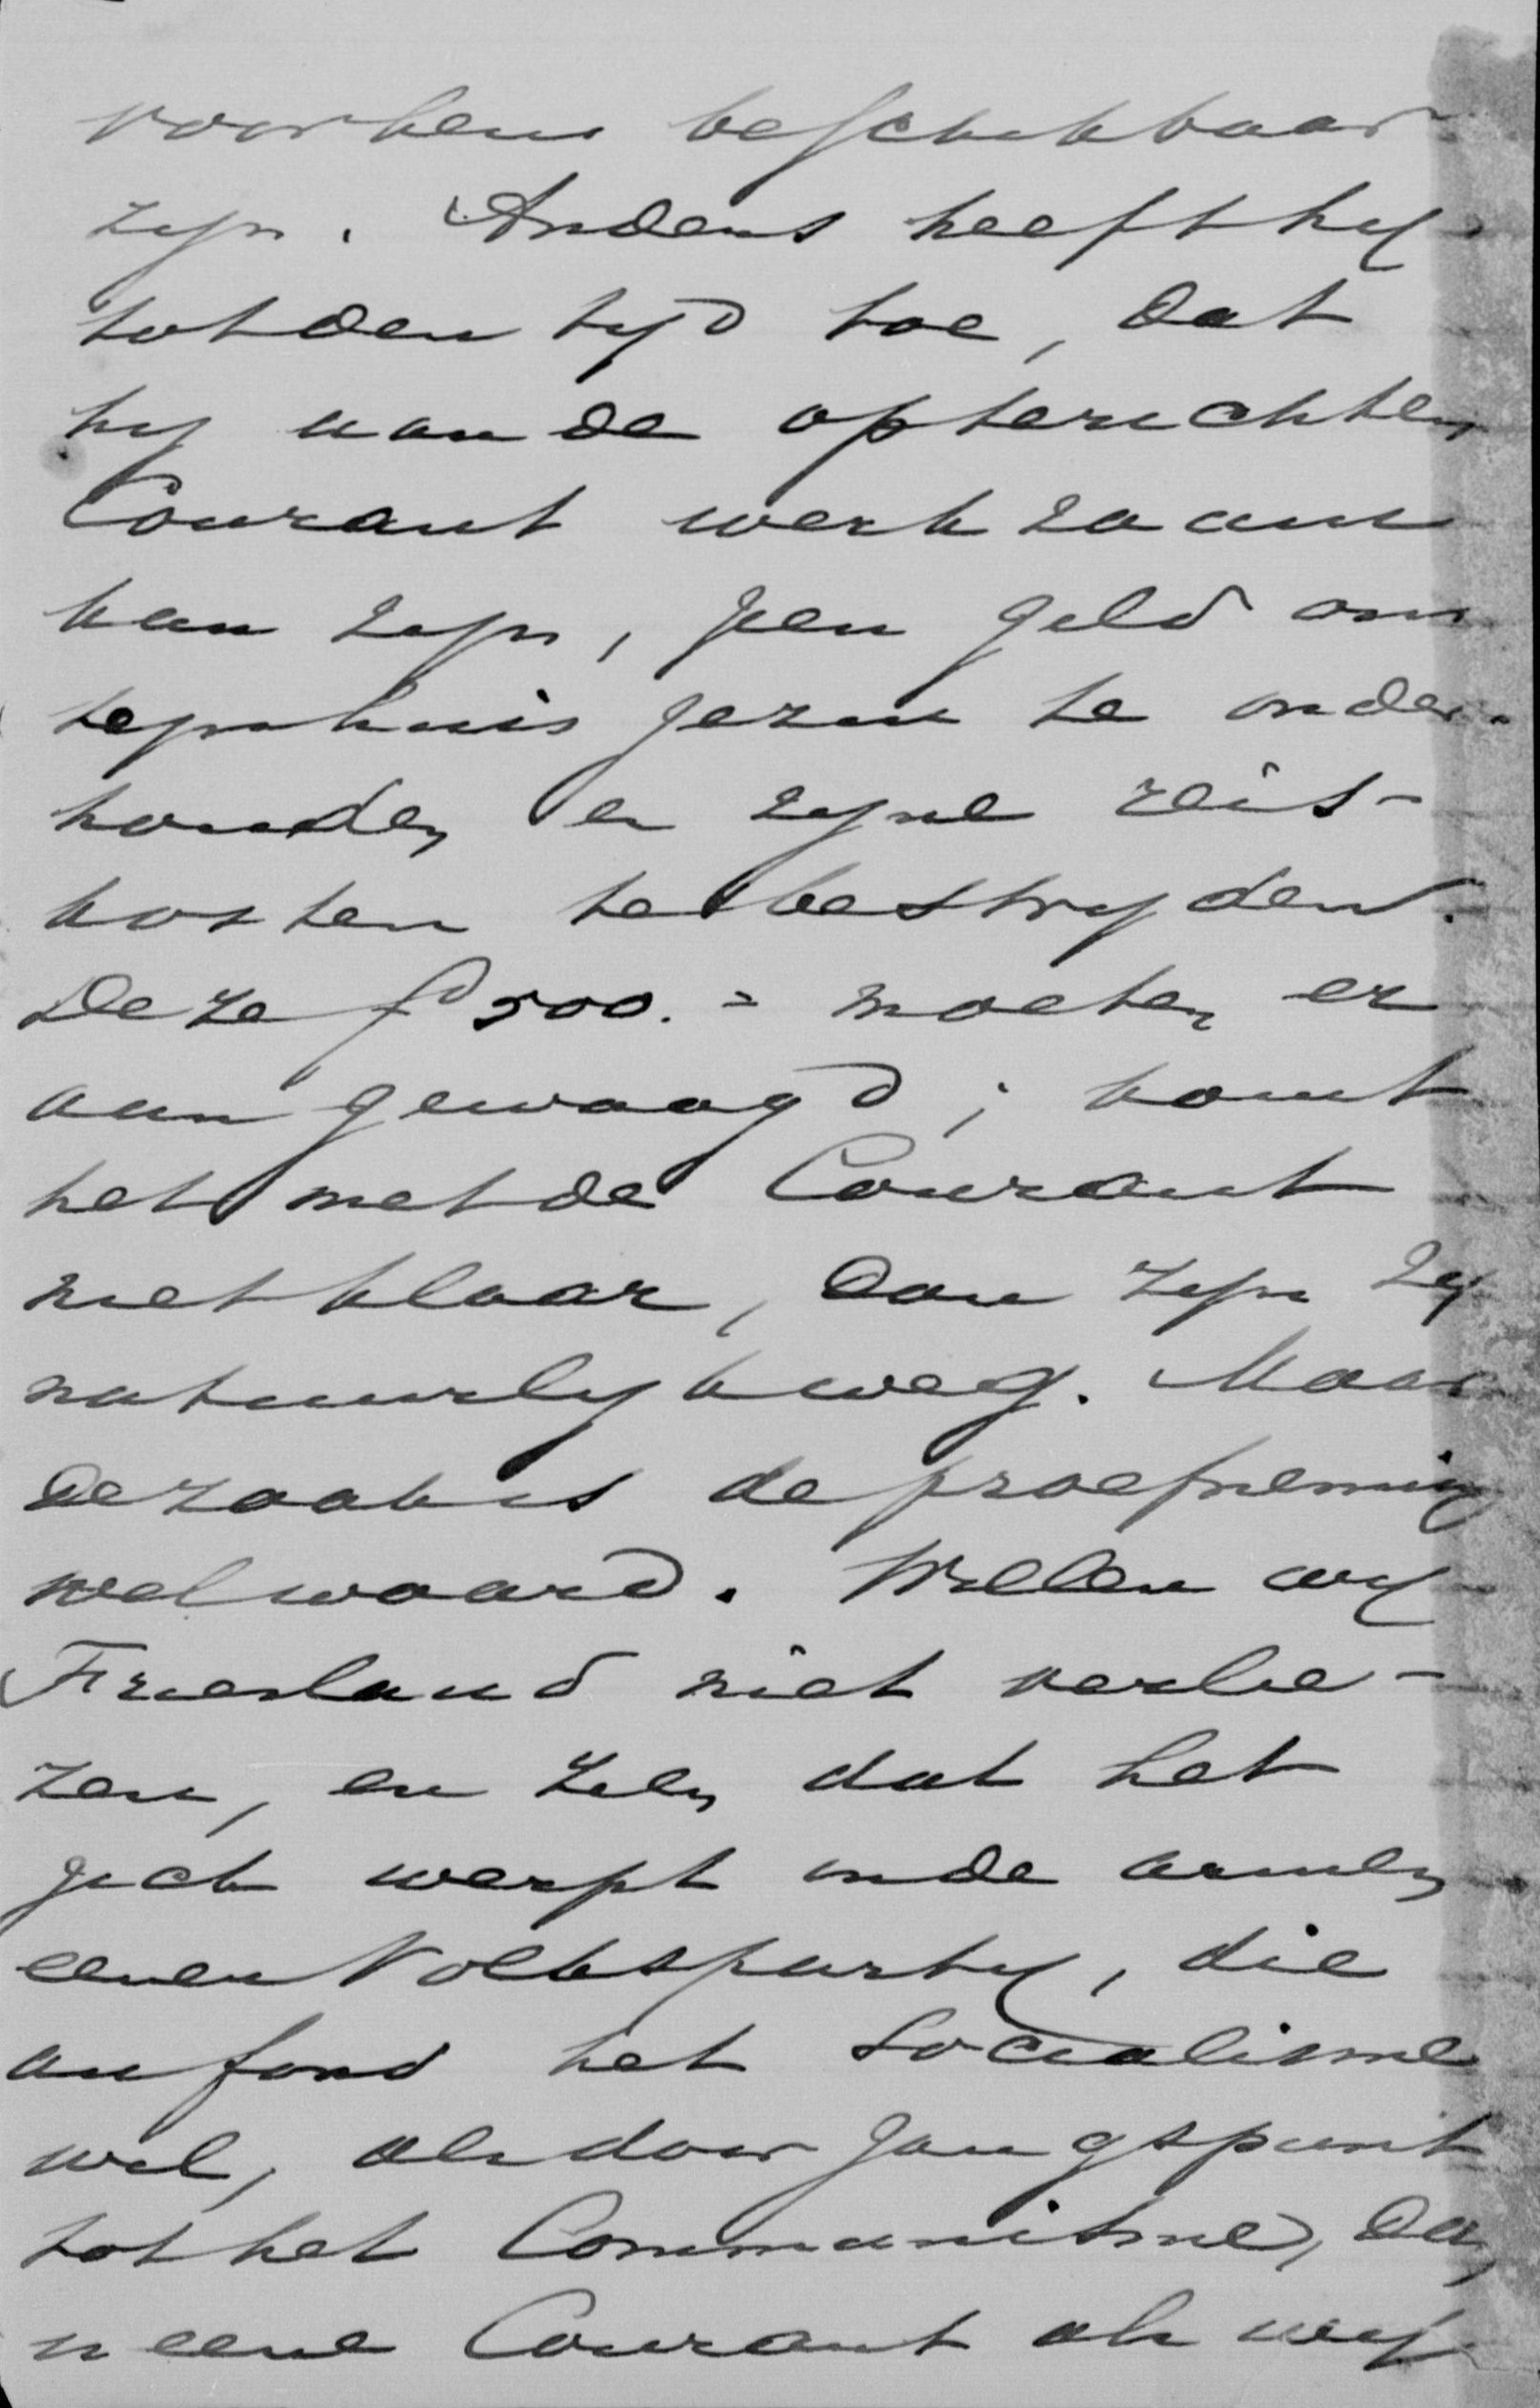 voor hem beschikbaar
zijn. Anders heeft hij
tot den tijd toe, dat
hij aan de opterichten
Courant werkzaam
kan zijn, geen geld om
te zijnhuis gezin te onder-
houden en zijne reis-
kosten te bestrijden.
Deze f 500.= moeten er
aan gewaagd; komt
het met de Courant
niet klaar, dan zijn zij
natuurlijk weg. Maar
de zaak is de proefneming
wel waard. Willen wij
Friesland niet verlie-
zen, en zien dat het
zich werpt in de armen
eener Volkspartij, die
au fond het Socialisme
wil, als doorgangspunt
tot het Communisme, dan
is eene Courant als wij